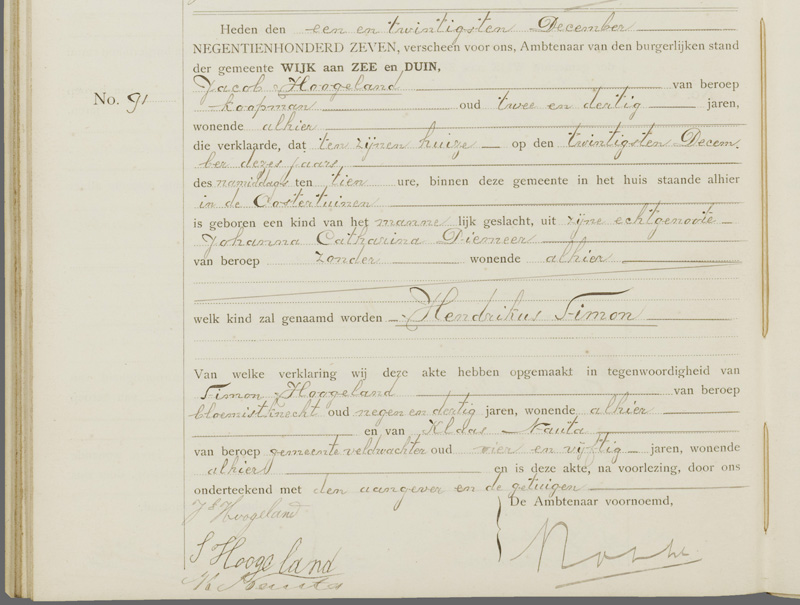 Heden den een en twintigsten December
NEGENTIENHONDERD ZEVEN, verscheen voor ons, Ambtenaar van den burgerlijken stand
der gemeente WIJK aan ZEE en DUIN,
Jacob Hoogeland van beroep
No. 91
koopman oud twee en dertig jaren,
wonende alhier
die verklaarde, dat ten zijnen huize op den twintigsten Decem.
ber dezes jaars,
des namiddags ten tien ure, binnen deze gemeente in het huis staande alhier
in de Oostertuinen
is geboren een kind van het manne lijk geslacht, uit zijne echtgenoote
Johanna Catharina Diemeer
van beroep zonder wonende alhier
welk kind zal genaamd worden Hendrikus Simon
Van welke verklaring wij deze akte hebben opgemaakt in tegenwoordigheid van
Simon Hoogeland van beroep
bloemistknecht oud negen en dertig jaren, wonende alhier
en van Klaas Nauta
van beroep gemeente veldwachter oud vier en vijftig jaren, wonende
alhier en is deze akte, na voorlezing, door ons
onderteekend met den aangever en de getuigen
De Ambtenaar voornoemd,
Hoogeland
S Hoogeland
K Nauta